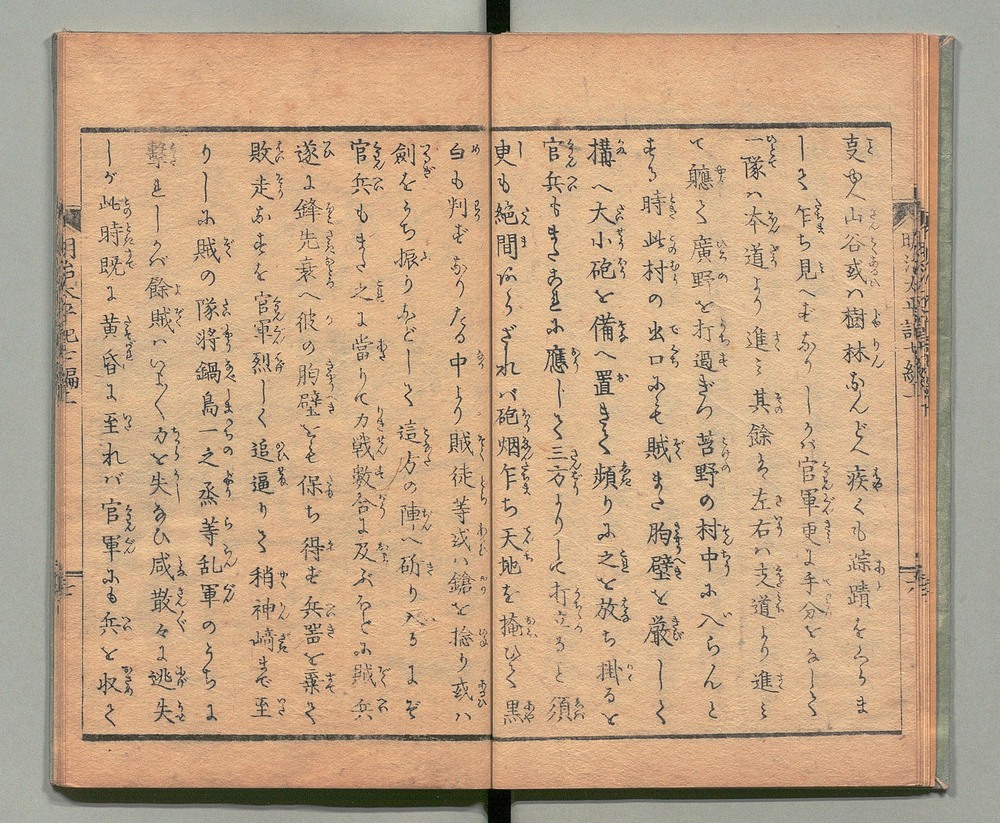 支や人山谷或ハ樹林なんどへ疾くも踪蹟をくらま
して乍ち見へずなりしかバ官軍更に手分をなして
一隊ハ本道より進ミ其余は左右ハ支道より進ミ
て軈て廣野を打過ぎつ苔野の村中に入らんと
する時此村の出口にも賊また胸壁を厳しく
構へ大小砲を備へ置きて頻りに之を放ち掛ると
官兵もまたこれに應じて三方よりして打立ると須
臾も絶間あらざれバ砲烟乍ち天地を掩ひて黒
白も判ずなりたる中より賊徒等或ハ鎗を捻り或ハ
劍をうち振りなどして這方の陣へ斫り入るにぞ
官兵もまた之に當りて力戦数合に及ぶほどに賊兵
遂に鋒先衰へ彼の胸壁をも保ち得ず兵器を棄て
敗走なすを官軍烈しく追逼りて稍神﨑まで至
りしに賊の隊将鍋島一之烝等乱軍のうちに
撃れしかバ餘賊ハいよ〳〵力を失なひ咸散々に逃失
しが此時既に黄昏に至れバ官軍にも兵を収て
明治太平記七編